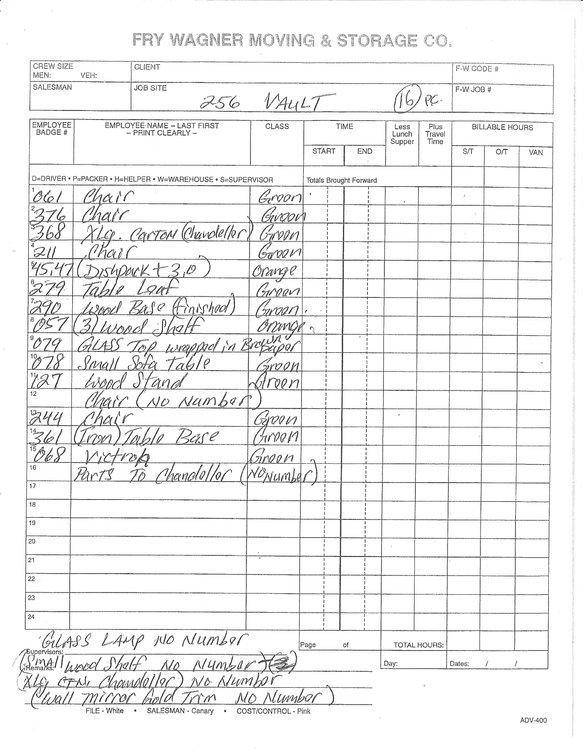 FRY WAGNER MOVING & STORAGE CO.
CREW SIZE CLIENT F-W CODE #
MEN: VEH:
SALESMAN JOB SITE F-W JOB #
256 VAULT 16 PC.
EMPLOYEE BADGE # EMPLOYEE NAME – LAST FIRST – PRINT CLEARLY – CLASS TIME Less Lunch Supper Plus Travel Time BILLABLE HOURS
START END S/T O/T VAN
D=DRIVER • P=PACKER • H=HELPER • W=WAREHOUSE • S=SUPERVISOR Totals Brought Forward
1 061 Chair Green
2 376 Chair Green
3 368 XLg. Carton (Chandeller) Green
4 211 Chair Green
5 45,47 (Dishpack + 3,0) Orange
6 279 Table Leaf Green
7 290 Wood Base (finished) Green
8 057 (3) Wood Shelf Orange
9 079 GLASS Top wrapped in Brown paper
10 078 Small Sofa Table Green
11 127 Wood Stand Green
12 Chair (No Number)
13 244 Chair Green
14 361 (Iron) Table Base Green
15 068 Victrola Green
16 Parts To Chandeller (No Number)
17
18
19
20
21
22
23
24
GLASS LAMP No Number Page of TOTAL HOURS:
Supervisors:
Remarks: (Small wood Shelf No Number) Day: Dates: / /
(XLg CTN. Chandeller) No Number
(Wall mirror Gold Trim No Number)
FILE - White • SALESMAN - Canary • COST/CONTROL - Pink
ADV-400